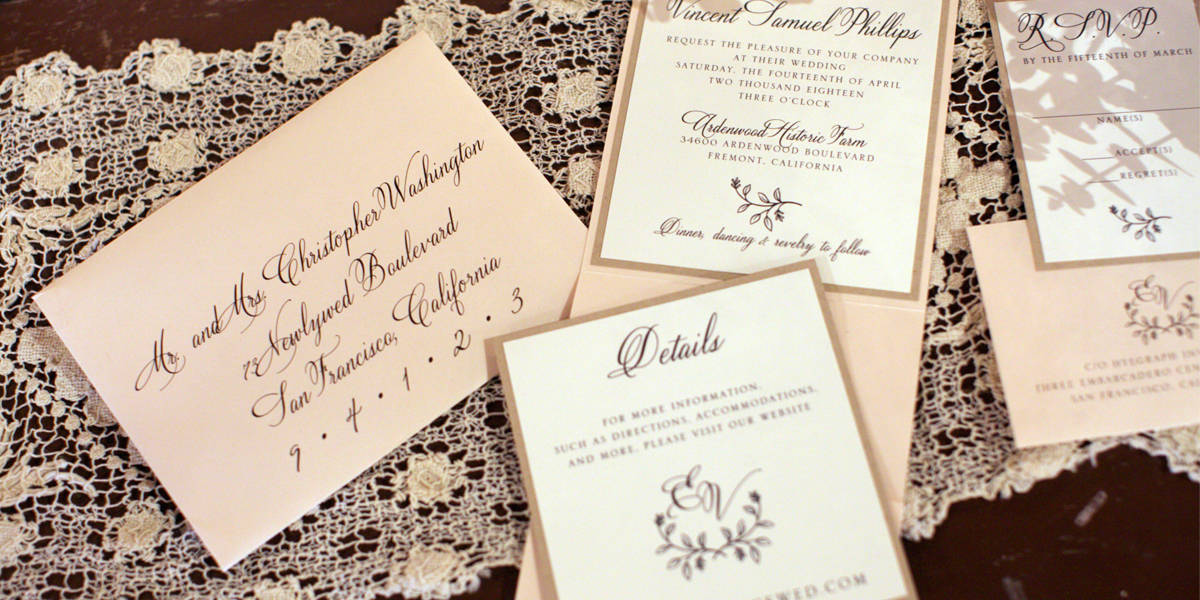 Mr. and Mrs. Christopher Washington
78 Newlywed Boulevard
San Francisco, California
9 • 4 • 1 • 2 • 3
Vincent Samuel Phillips
REQUEST THE PLEASURE OF YOUR COMPANY
AT THEIR WEDDING
SATURDAY, THE FOURTEENTH OF APRIL
TWO THOUSAND EIGHTEEN
THREE O'CLOCK
Ardenwood Historic Farm
34600 ARDENWOOD BOULEVARD
FREMONT, CALIFORNIA
Dinner, dancing & revelry to follow
Details
FOR MORE INFORMATION,
SUCH AS DIRECTIONS, ACCOMMODATIONS,
AND MORE, PLEASE VISIT OUR WEBSITE
EV
R.S.V.P.
BY THE FIFTEENTH OF MARCH
NAME(S)
ACCEPT(S)
REGRET(S)
EV
C/O
THREE EMBARCADERO
SAN FRANCISCO,